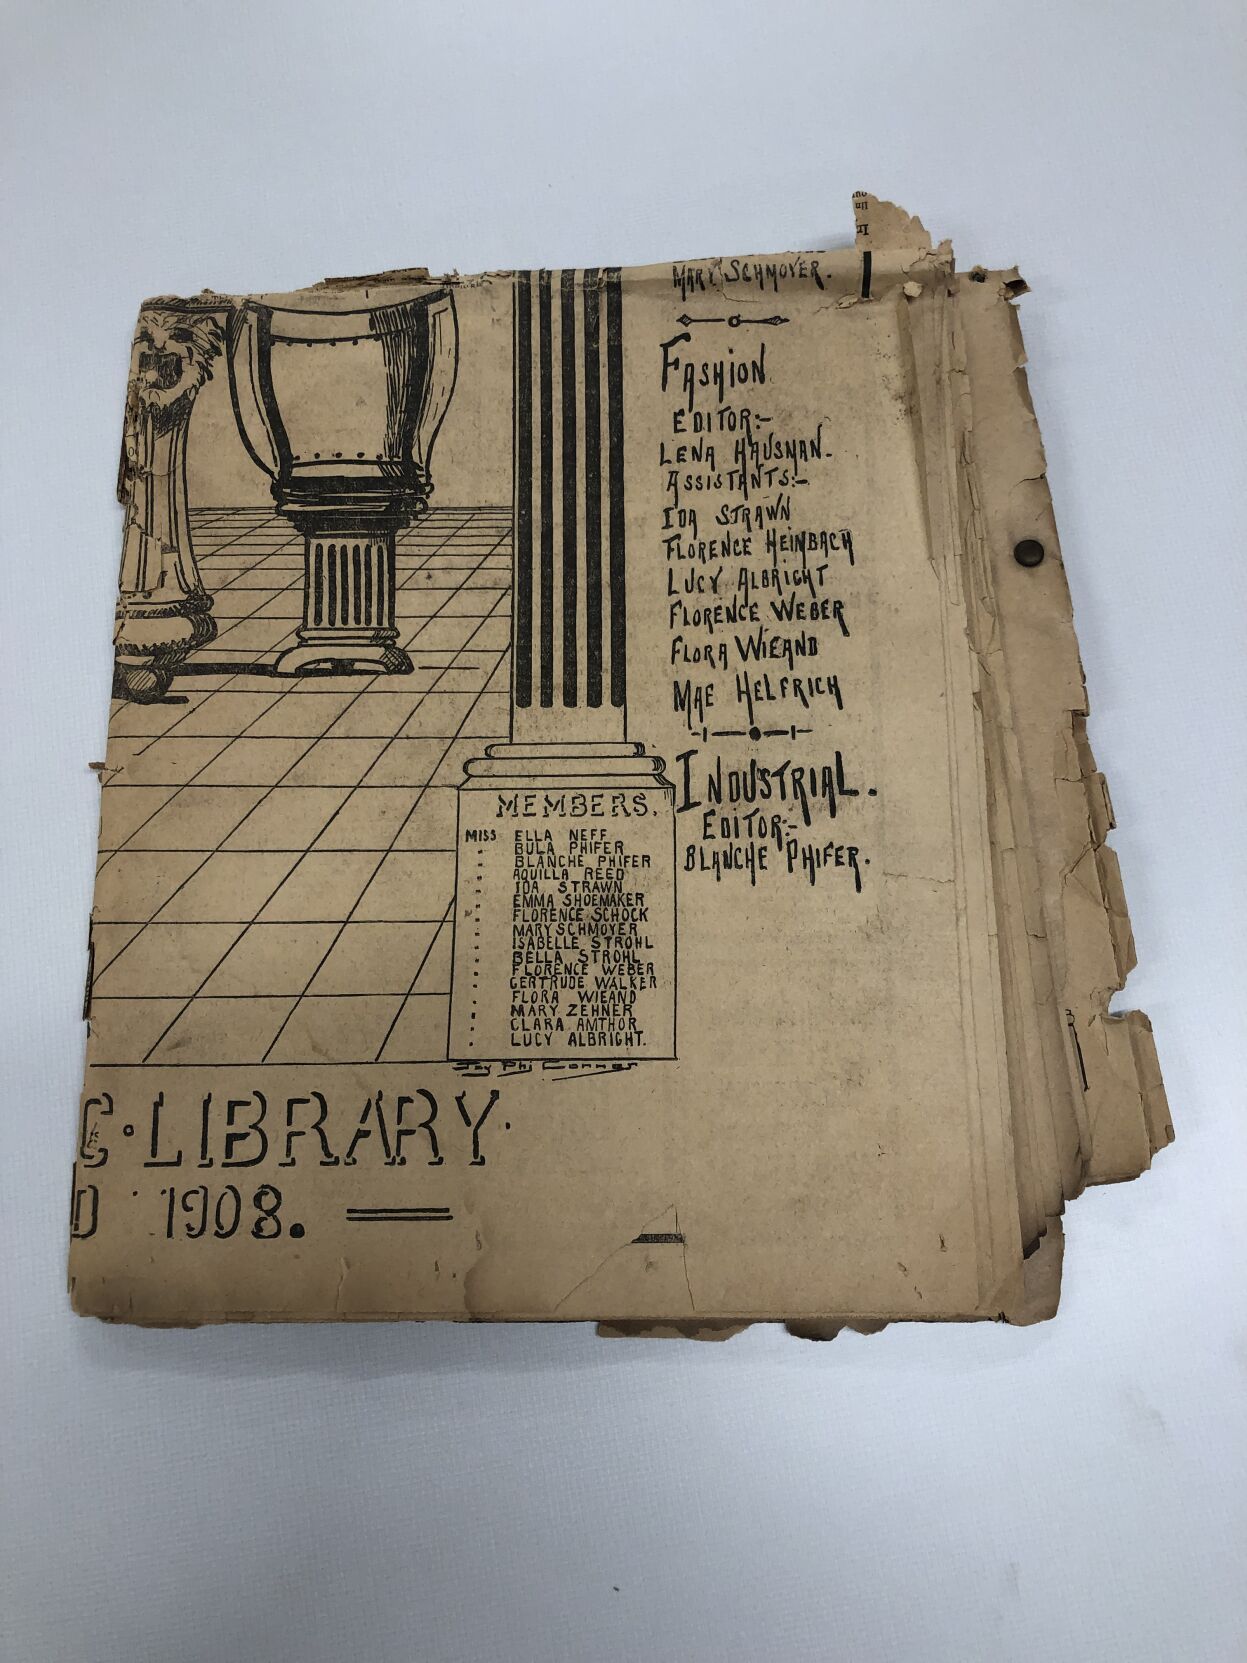 MARY SCHMOYER.
FASHION
EDITOR:-
LENA HAUSMAN.
ASSISTANTS:-
IDA STRAWN
FLORENCE HEINBACH
LUCY ALBRIGHT
FLORENCE WEBER
FLORA WIEAND
MAE HELFRICH
INDUSTRIAL.
EDITOR:-
BLANCHE PHIFER.
MEMBERS.
MISS ELLA NEFF
" BULA PHIFER
" BLANCHE PHIFER
" AQUILLA REED
" IDA STRAWN
" EMMA SHOEMAKER
" FLORENCE SCHOCK
" MARY SCHMOYER
" ISABELLE STROHL
" BELLA STROHL
" FLORENCE WEBER
" GERTRUDE WALKER
" FLORA WIEAND
" MARY ZEHNER
" CLARA AMTHOR
" LUCY ALBRIGHT.
C·LIBRARY·
D 1908.